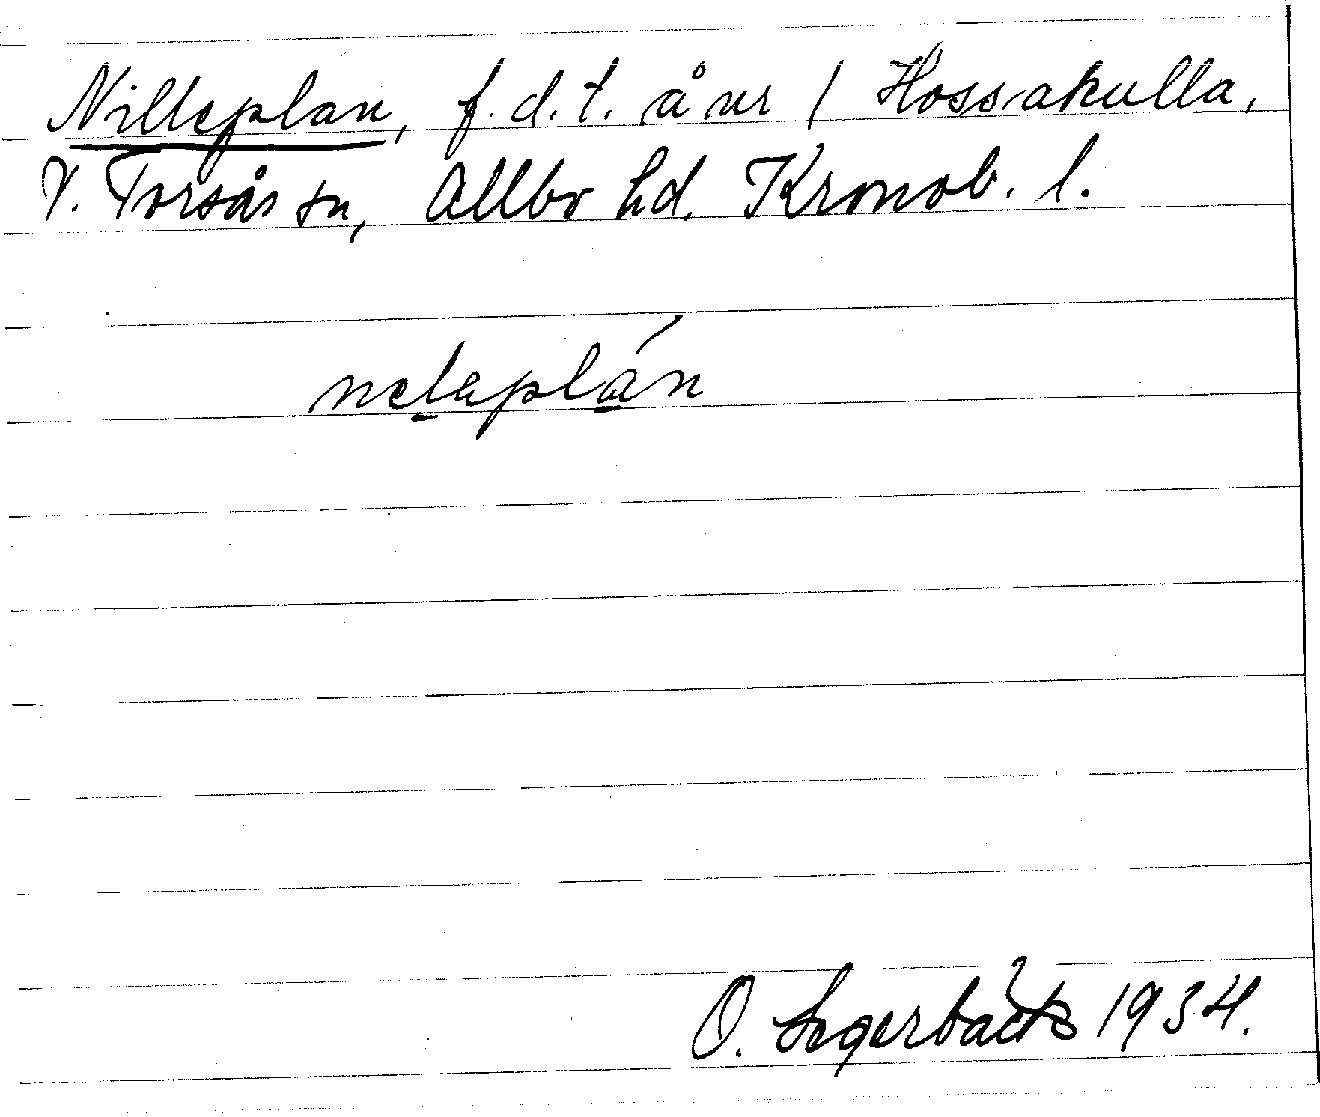 Nilleplan, f.d.t. å nr 1 Hossakulla,
V. Torsås sn, Allbo hd. Kronob. l.
nelaplán
O. 1934.